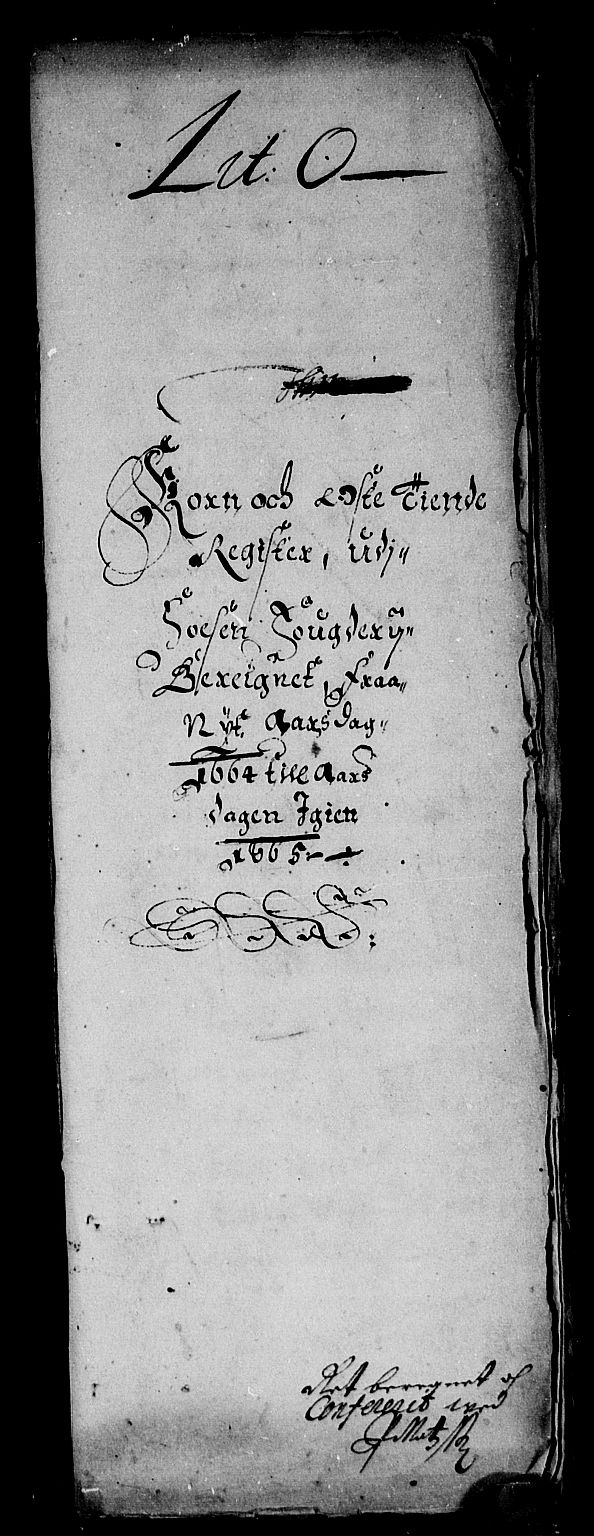 Lit: O
Korn och Oste Tiende
Register, udj
Fougderij
Bereignet, Fraa
Nyt Aarsdag
1664 till Aars
dagen Igien
1665
Ret beregnet och
Confererit med